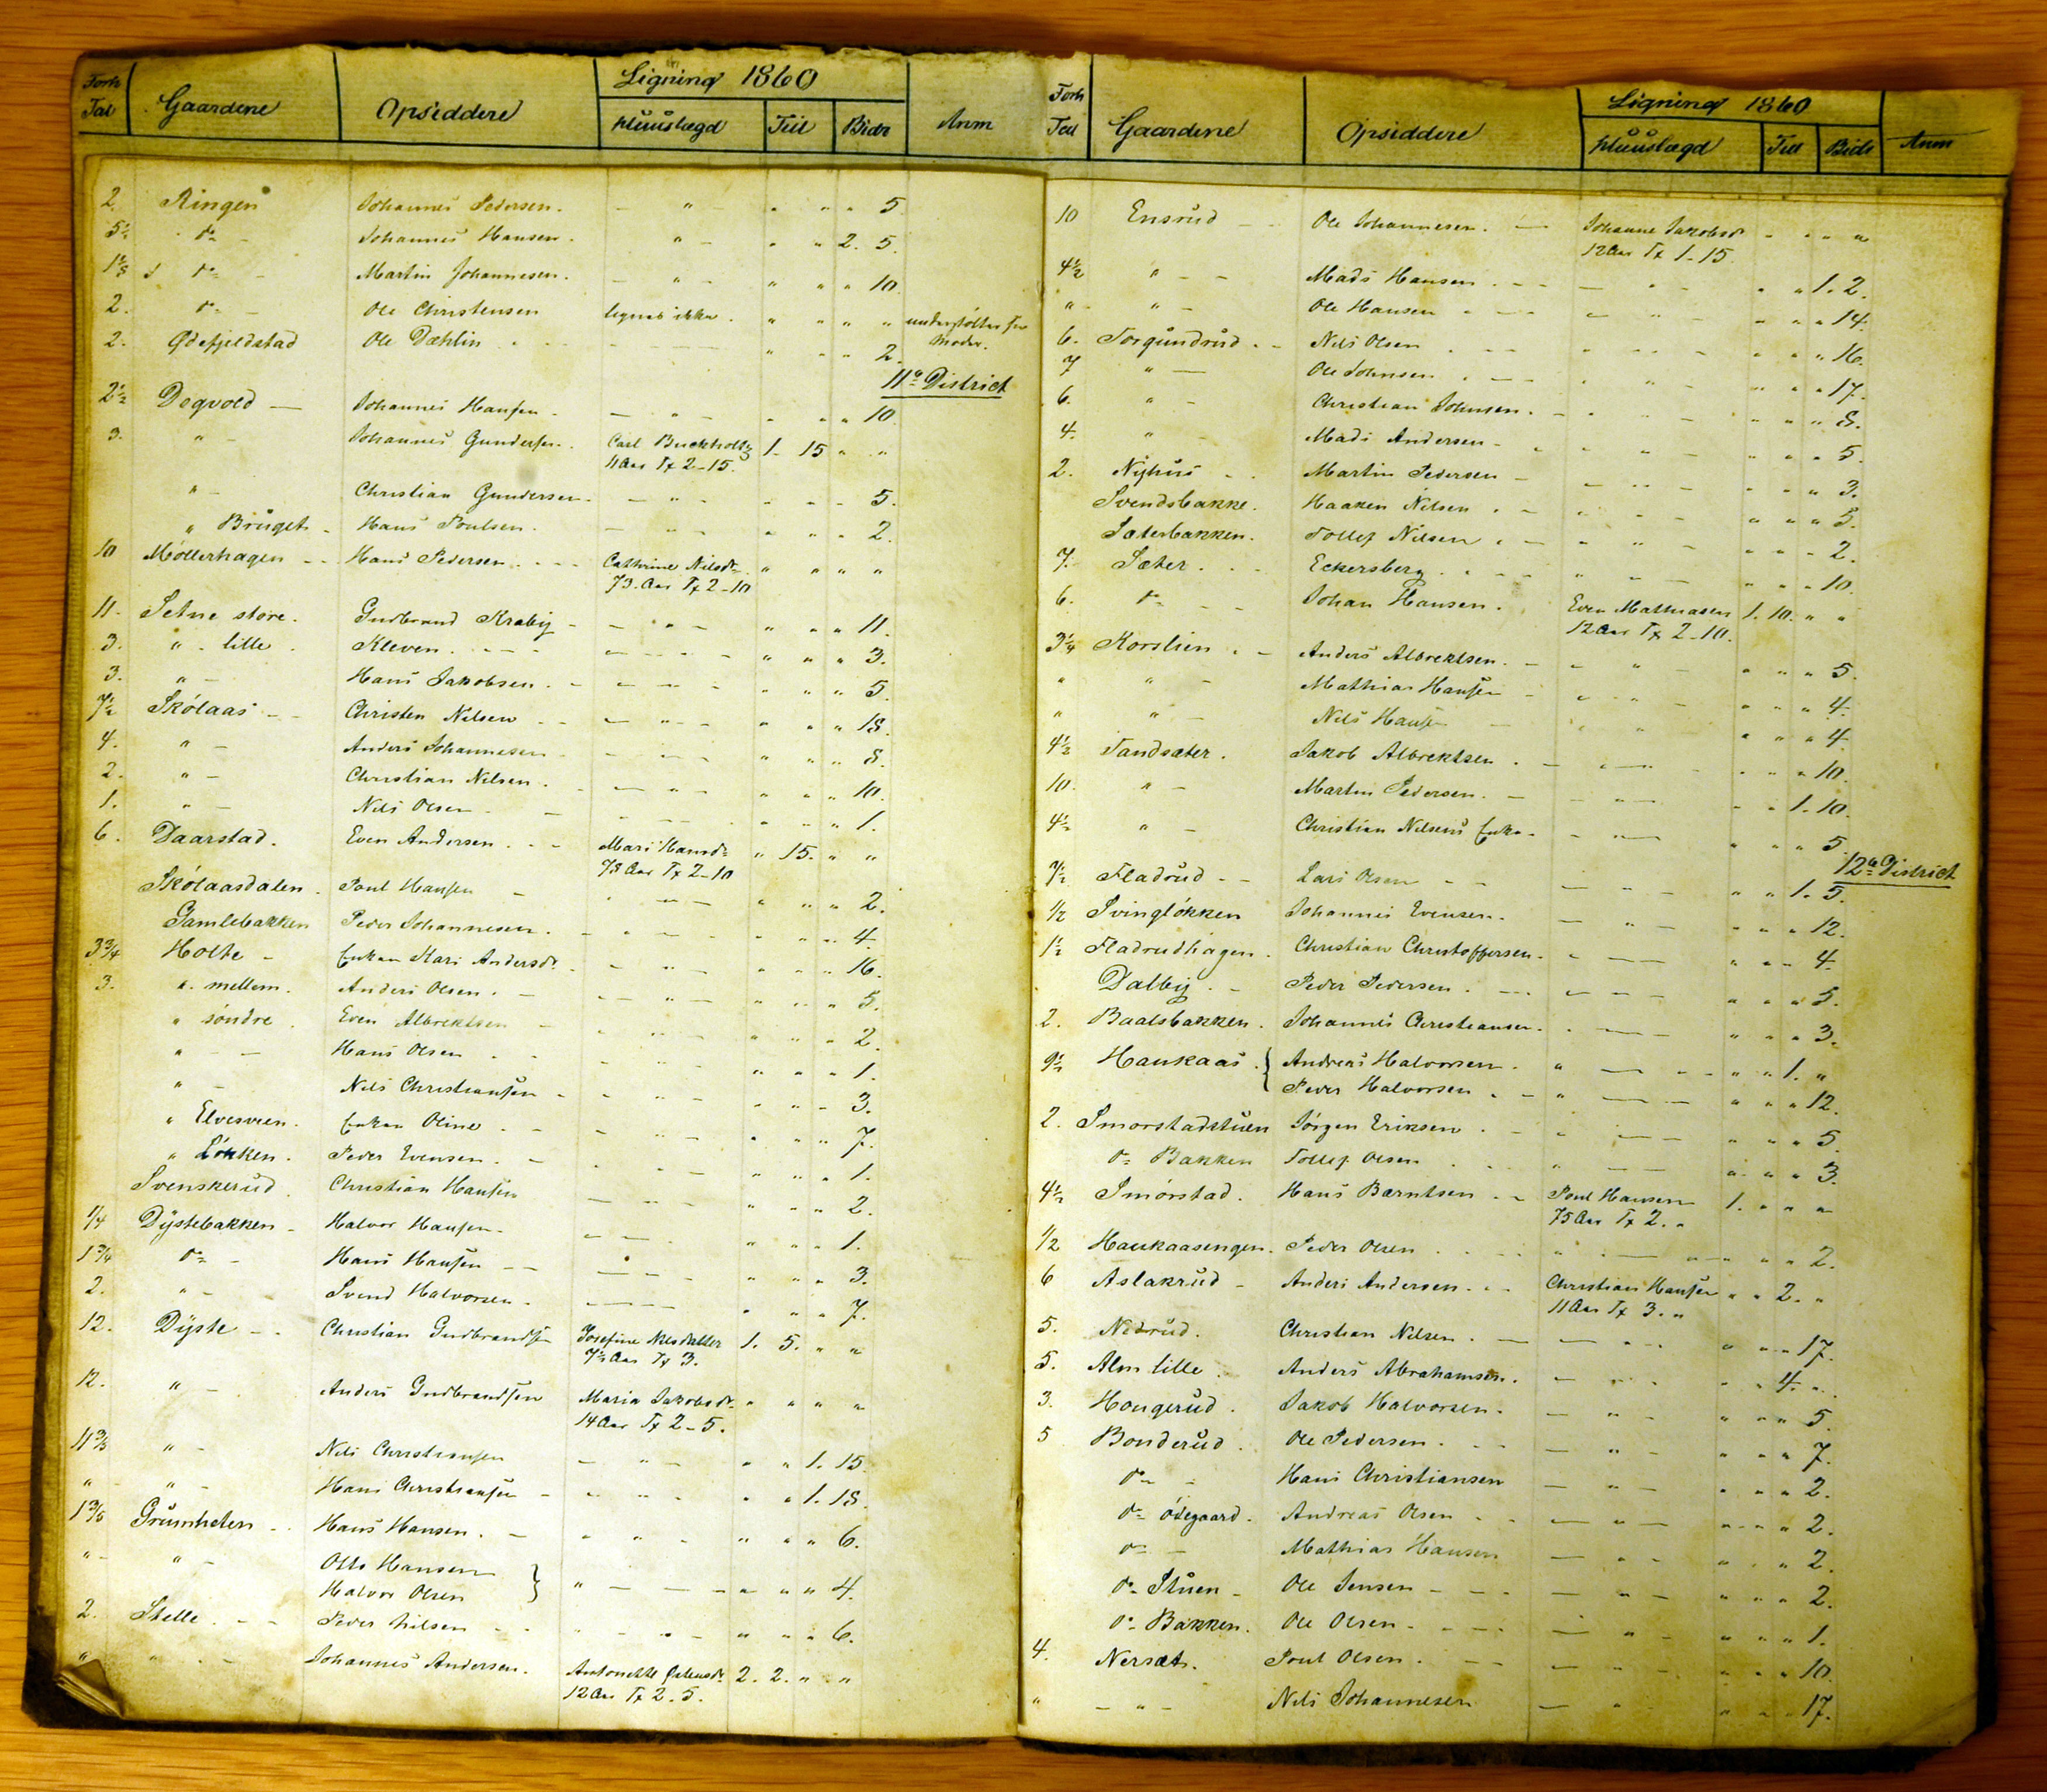 Forh Tal Gaardene Opsiddere Ligning 1860 Anm
Huuslægd Till Bidr
2. Ringen Johannes Pedersen. — " — " " " 5
5½ do — Johannes Hansen. " — " " 2. 5.
do — Martin Johannesen. — " — " " " 10
2. do — Ole Christensen lignes ikke. " " " " understøttes
Moder.
2. Ole Dæhlin — — " " " 2.
11te District
2½ Dogvold — Johannes Hansen — — " — " " " 10
3. " — Johannes Gundersen. Carl Buckholtz 1. 15 " "
11 Aar Tx 2-15.
" — Christian Gundersen. — " — " " " 5.
" Bruget — Hans Poulsen. — " — " " " 2.
10 Möllerhagen — — Hans Pedersen. — — Cathrine Nilsdr. " " " "
73. Aar Tx 2-10
11. Setne store. Gudbrand Kraby — — " — " " " 11.
3. " — lille Kleven. — — — — — — " " " 3.
3. " — Hans Jakobsen. — — " — " " " 5.
7½ Skólaas — — Christen Nilsen — — — " — " " " 18.
4. " — Anders Johannesen — — — " " " 8.
2. " — Christian Nilsen. — — " — " " " 10.
1. " — Nils Olsen — — — " " " 1.
6. Daarstad. Even Andersen — — Mari Hansdr. " 15. " "
73 Aar Tx 2-10
Skólaasdalen. Poul Hansen — — " — " " " 2.
Gamlebakken Peder Johannesen. — — — " " " 4.
3¾ Holte — Enken Kari Andersdr. — " — " " " 16.
3. " mellem. Anders Olsen. — — " — " " " 5.
" söndre. Even Albrektsen — — " — " " " 2.
" — — Hans Olsen — — — " " " 1.
" — Nils Christiansen — — " — " " " 3.
" Elvesveen. Enken Oline — — — " " " 7.
" Lökken. Peder Evensen. — — " — " " " 1.
Svenskerud Christian Hansen — — — " " " 2.
1/4 Dÿstebakken — Halvor Hansen — — — " " " 1.
1¾ do — Hans Hansen — — — — — " " " 3.
2. " — Svend Halvorsen — — — — " " " 7.
12. Dÿste — — Christian Gudbrandsen Josefine Nilsdatter 1. 5. " "
7½ Aar Tx 3.
12. " — Anders Gudbrandsen Maria Jakobsdr. " " " "
14 Aar Tx 2-5.
" — Nils Christiansen — " — " " 1. 15.
" " — Hans Christiansen — — " — " " 1. 18.
Grümhelen — — Hans Hansen. — — " — " " " 6.
" " — Otto Hansen }
Halvor Olsen } " — — — " " " 4.
2. Stelle. — — Peder Nilsen — — " — " — " " " 6.
" " — — Johannes Andersen. Antonette 2. 2. " "
12 Aar Tx 2. 5.
Forh Tal Gaardene Opsiddere Ligning 1860 Anm
Huuslægd Till Bidr
10 Ensrüd — — Ole Johannesen. — Johanne Jakobsdr. " " " "
12 Aar Tx 1-15
4½ " — — Mads Hansen. — — — " — " " 1. 2.
" " — Ole Hansen — — — " — " " " 14.
6. Torgündrüd. — Nils Olsen — — — " — " " " 16.
7 " — Ole Johnsen. — — " — " " " 17.
6. " — Christian Johnsen. — " — " " " 8.
4. " — Mads Andersen — " — " " " 5.
2. Nÿhüs — Martin Pedersen — — — " " " 3.
Svendsbakke. Haaken Nilsen. — " — " " " 5.
Sæterbakken. Tollef Nilsen — — " — " " " 2.
7. Sæter. — — Eckersberg. — — " — " " " 10.
6. do — — Johan Hansen. Even Mathiasen 1. 10. " "
12 Aar Tx 2-10.
3¼ Korslien. — Anders Albrektsen. — — " — " " " 5.
" " — Mathias Hansen — " — " " " 4.
" " — Nils Hansen — " " " " " 4.
4½ Tandsæter. Jakob Albrektsen. — " — " " " 10.
10. " — Martin Pedersen. — — " — " " 1. 10.
4½ " — Christian Nilsens Enke — " — " " " 5.
12te District
7½ Fladrüd — — Lars Olsen — — — — " " 1. 5.
1/2 Svinglökken Johannes Evensen. — " — " " " 12.
1½ Fladrudhagen. Christian Christoffersen. — — — " " " 4.
Dalbÿ. — Peder Pedersen. — — — — " " " 5.
2. Baalsbakken. Johannes Christiansen. — — — " " " 3.
9½ Haukaas. { Andreas Halvorsen. " — — " " 1. "
Peder Halvorsen. — " — — " " " 12.
2. Smorstadstüen Jörgen Eriksen. — " — — " " " 5
do Bakken Tollef Olsen — " — — " " " 3.
4½ Smörstad. Hans Bærntsen — — Poul Hansen 1. " " "
75 Aar Tx 2. "
1/2 Haukaasengen. Peder Olsen — — " — — " " " 2.
6 Aslakrüd — Anders Andersen — — Christian Hansen " " 2. "
11 Aar Tx 3. "
5. Nedrüd. Christian Nilsen. — — — " " " 17.
5. Alm lille. Anders Abrahamsen. — — — " " 4. "
3. Hougerüd. Jakob Halvorsen. — " — " " " 5
5 Bonderüd. Ole Pedersen. — — — " — " " " 7.
do — Hans Christiansen — " — " " " 2.
do ödegaard. Andreas Olsen — — " — " " " 2.
do — Mathias Hansen — " — " " " 2.
do Stüen — Ole Jensen — — — " — " " " 2.
do Bakken. Ole Olsen — — — " — " " " 1.
4. Nersæt. Poul Olsen. — — — " — " " " 10
" — " — Nils Johannesen — " — " " " 17.